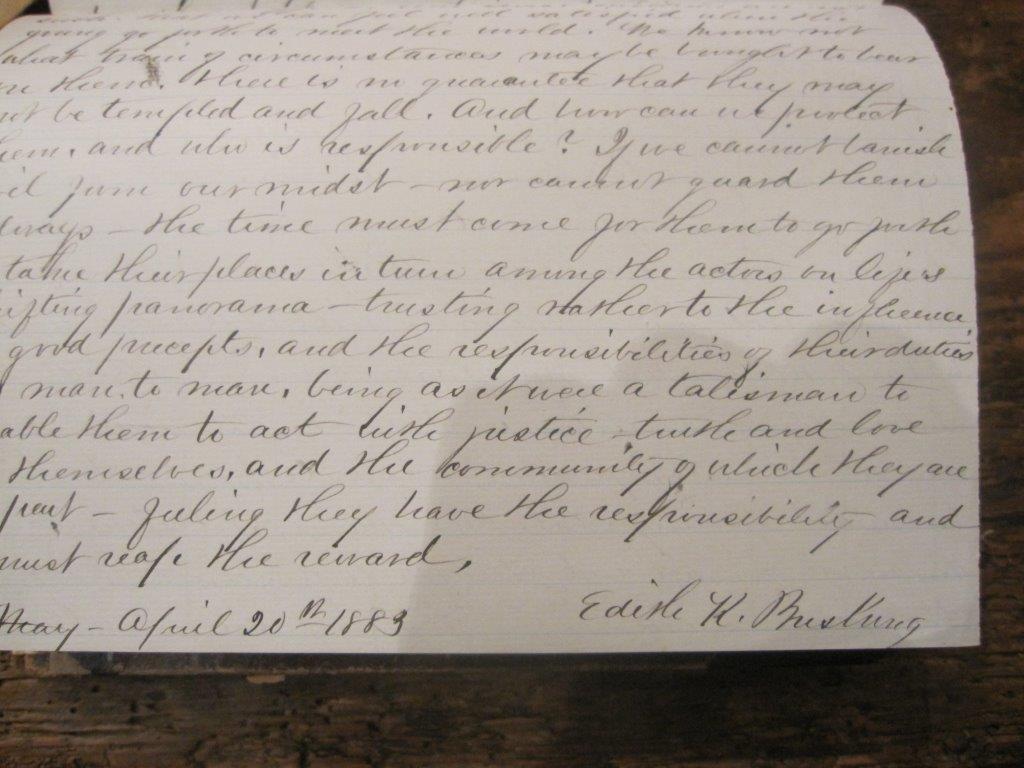 not feel well satisfied when the
going go forth to meet the world. We know not
what train of circumstances may be brought to bear
on them. There is no guarantee that they may
not be tempted and fall. And how can we protect
them, and who is responsible? If we cannot banish
evil from our midst - nor cannot guard them
always - the time must come for them to go forth
take their places in turn among the actors on life's
shifting panorama - trusting rather to the influence
good precepts, and the responsibilities of their duties
man to man, being as it were a talisman to
able them to act with justice - truth and love
themselves, and the community of which they are
part - feeling they have the responsibility and
must reap the reward,
May - April 20th 1883 Edith K.